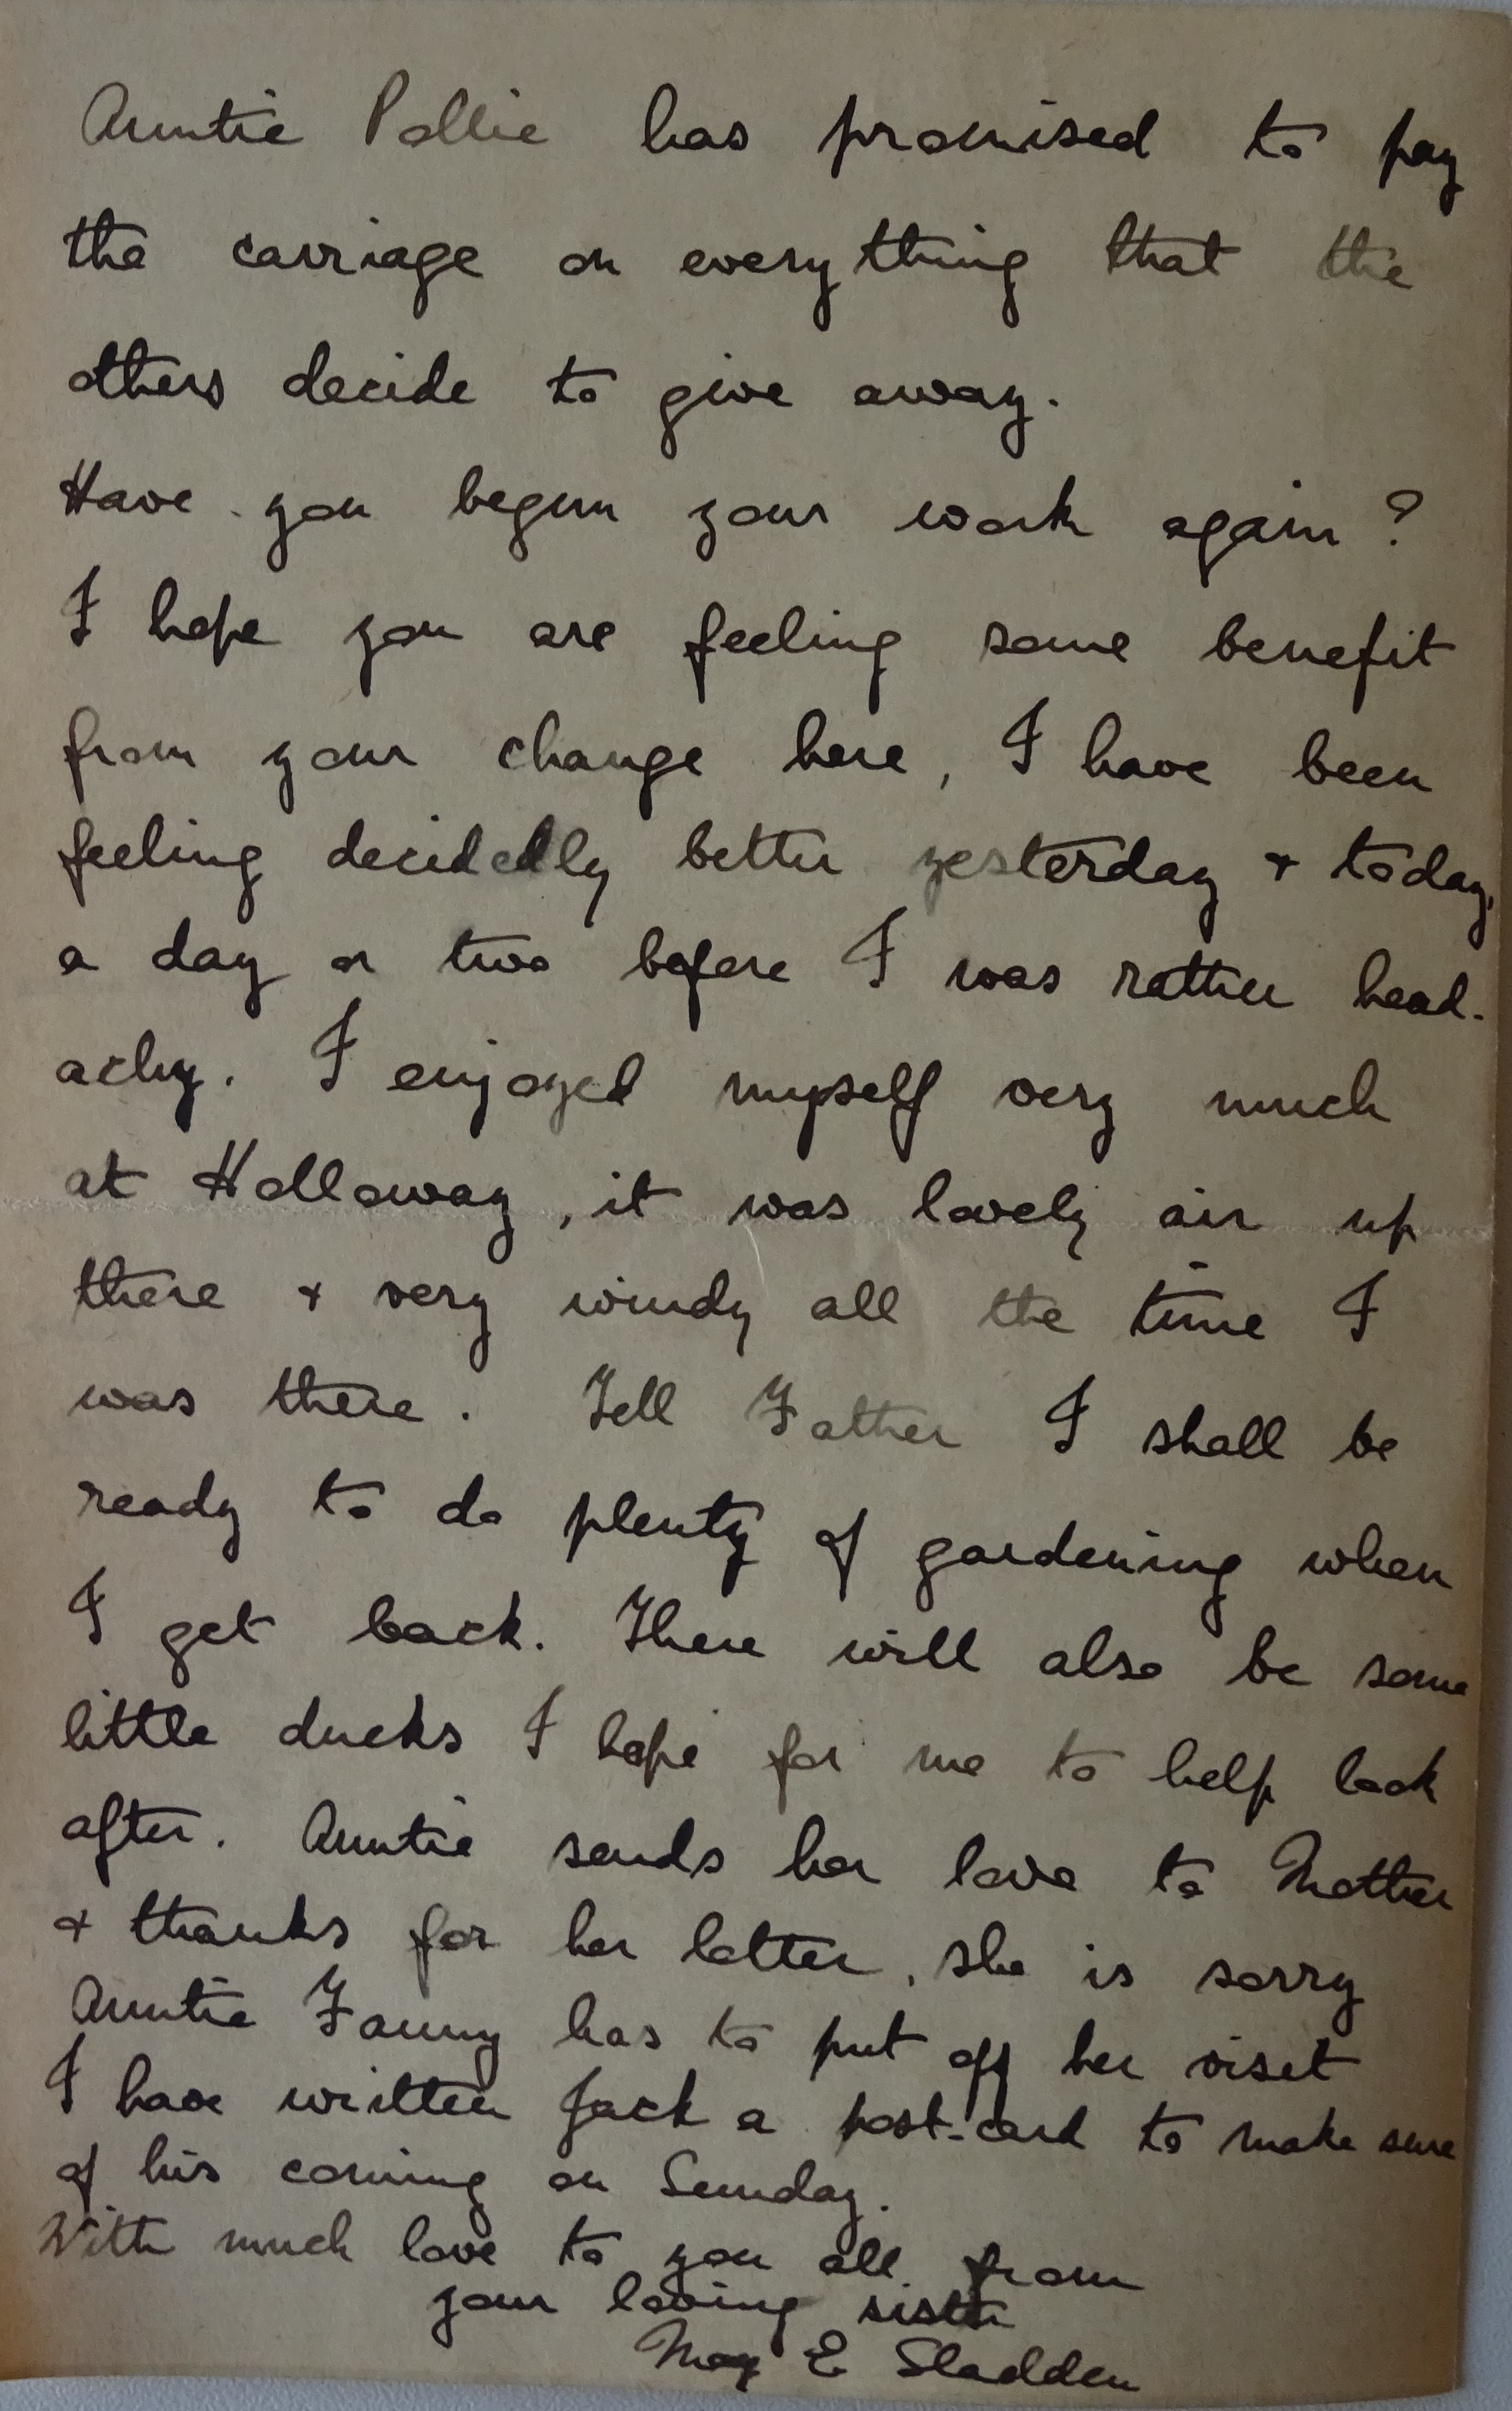 Auntie Pollie has promised to pay
the carriage on everything that the
others decide to give away.
Have you begun your work again?
I hope you are feeling some benefit
from your change here, I have been
feeling decidedly better yesterday & today,
a day or two before I was rather head-
achy. I enjoyed myself very much
at Holloway, it was lovely air up
there & very windy all the time I
was there. Tell Father I shall be
ready to do plenty of gardening when
I get back. There will also be some
little ducks I hope for me to help look
after. Auntie sends her love to Mother
& thanks for her letter, she is sorry
Auntie Fanny has to put off her visit
I have written Jack a post-card to make sure
of his coming on Sunday.
With much love to you all from
your loving sister
May E Sladden